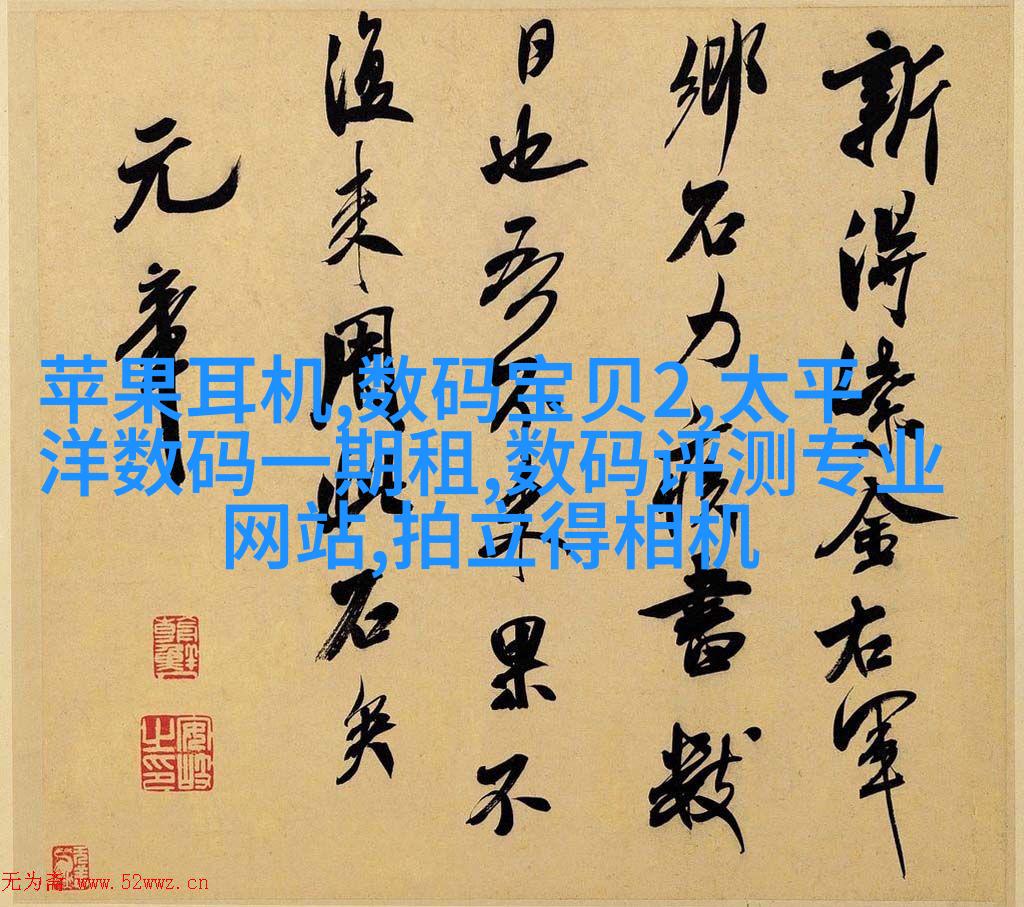 新得紫金右軍
鄉石力疾書數
日也吾不来果不
復来用此石矣
元章
苹果耳机,数码宝贝2,太平
洋数码一期租,数码评测专业
网站,拍立得相机
安岐之印
无为斋 www.52wwz.cn